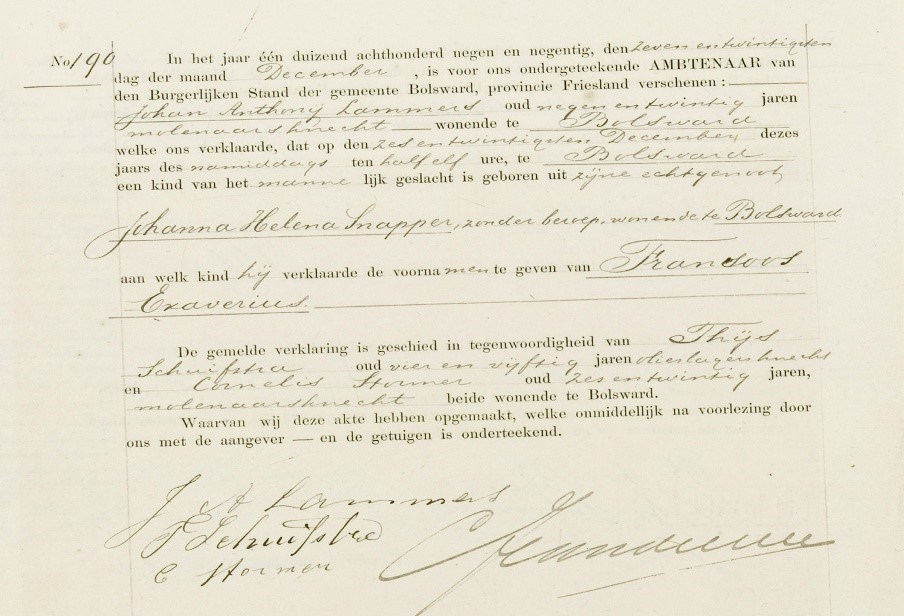 No 190
In het jaar één duizend achthonderd negen en negentig, den zevenentwintigsten
dag der maand December, is voor ons ondergeteekende AMBTENAAR van
den Burgerlijken Stand der gemeente Bolsward, provincie Friesland verschenen :
Johan Anthony Lammers oud negenentwintig jaren
molenaarsknecht wonende te Bolsward
welke ons verklaarde, dat op den zesentwintigsten December, dezes
jaars des namiddags ten half elf ure, te Bolsward
een kind van het mannelijk geslacht is geboren uit zijne echtgenoot,
Johanna Helena Snapper, zonder beroep, wonende te Bolsward
aan welk kind hij verklaarde de voornamen te geven van Fransoos
Exaverius.
De gemelde verklaring is geschied in tegenwoordigheid van Thijs
Schuifstra oud vier en vijftig jaren olieslagersknecht
en Cornelis Stormer oud zesentwintig jaren,
molenaarsknecht beide wonende te Bolsward.
Waarvan wij deze akte hebben opgemaakt, welke onmiddellijk na voorlezing door
ons met de aangever — en de getuigen is onderteekend.
J A Lammers
T Schuifstra
C Stormer